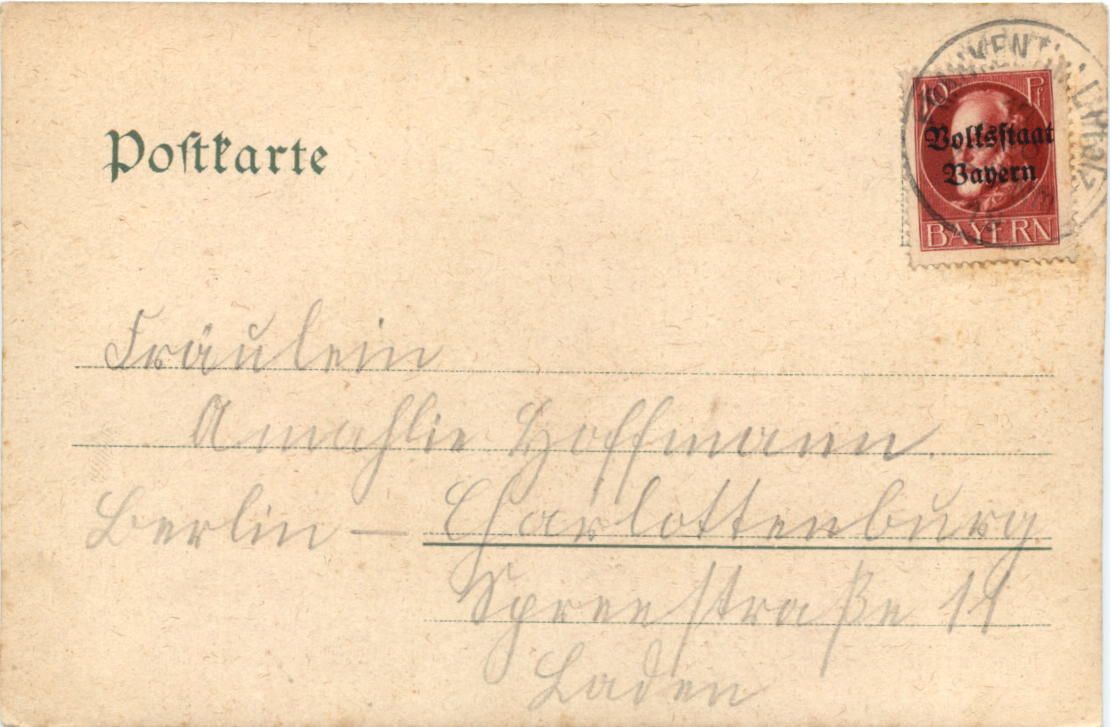 Postkarte
10 Pf
Volksstaat
Bayern
BAYERN
Fräulein
Amahlie Hoffmann.
Berlin – Charlottenburg
Spreestraße 11
Laden